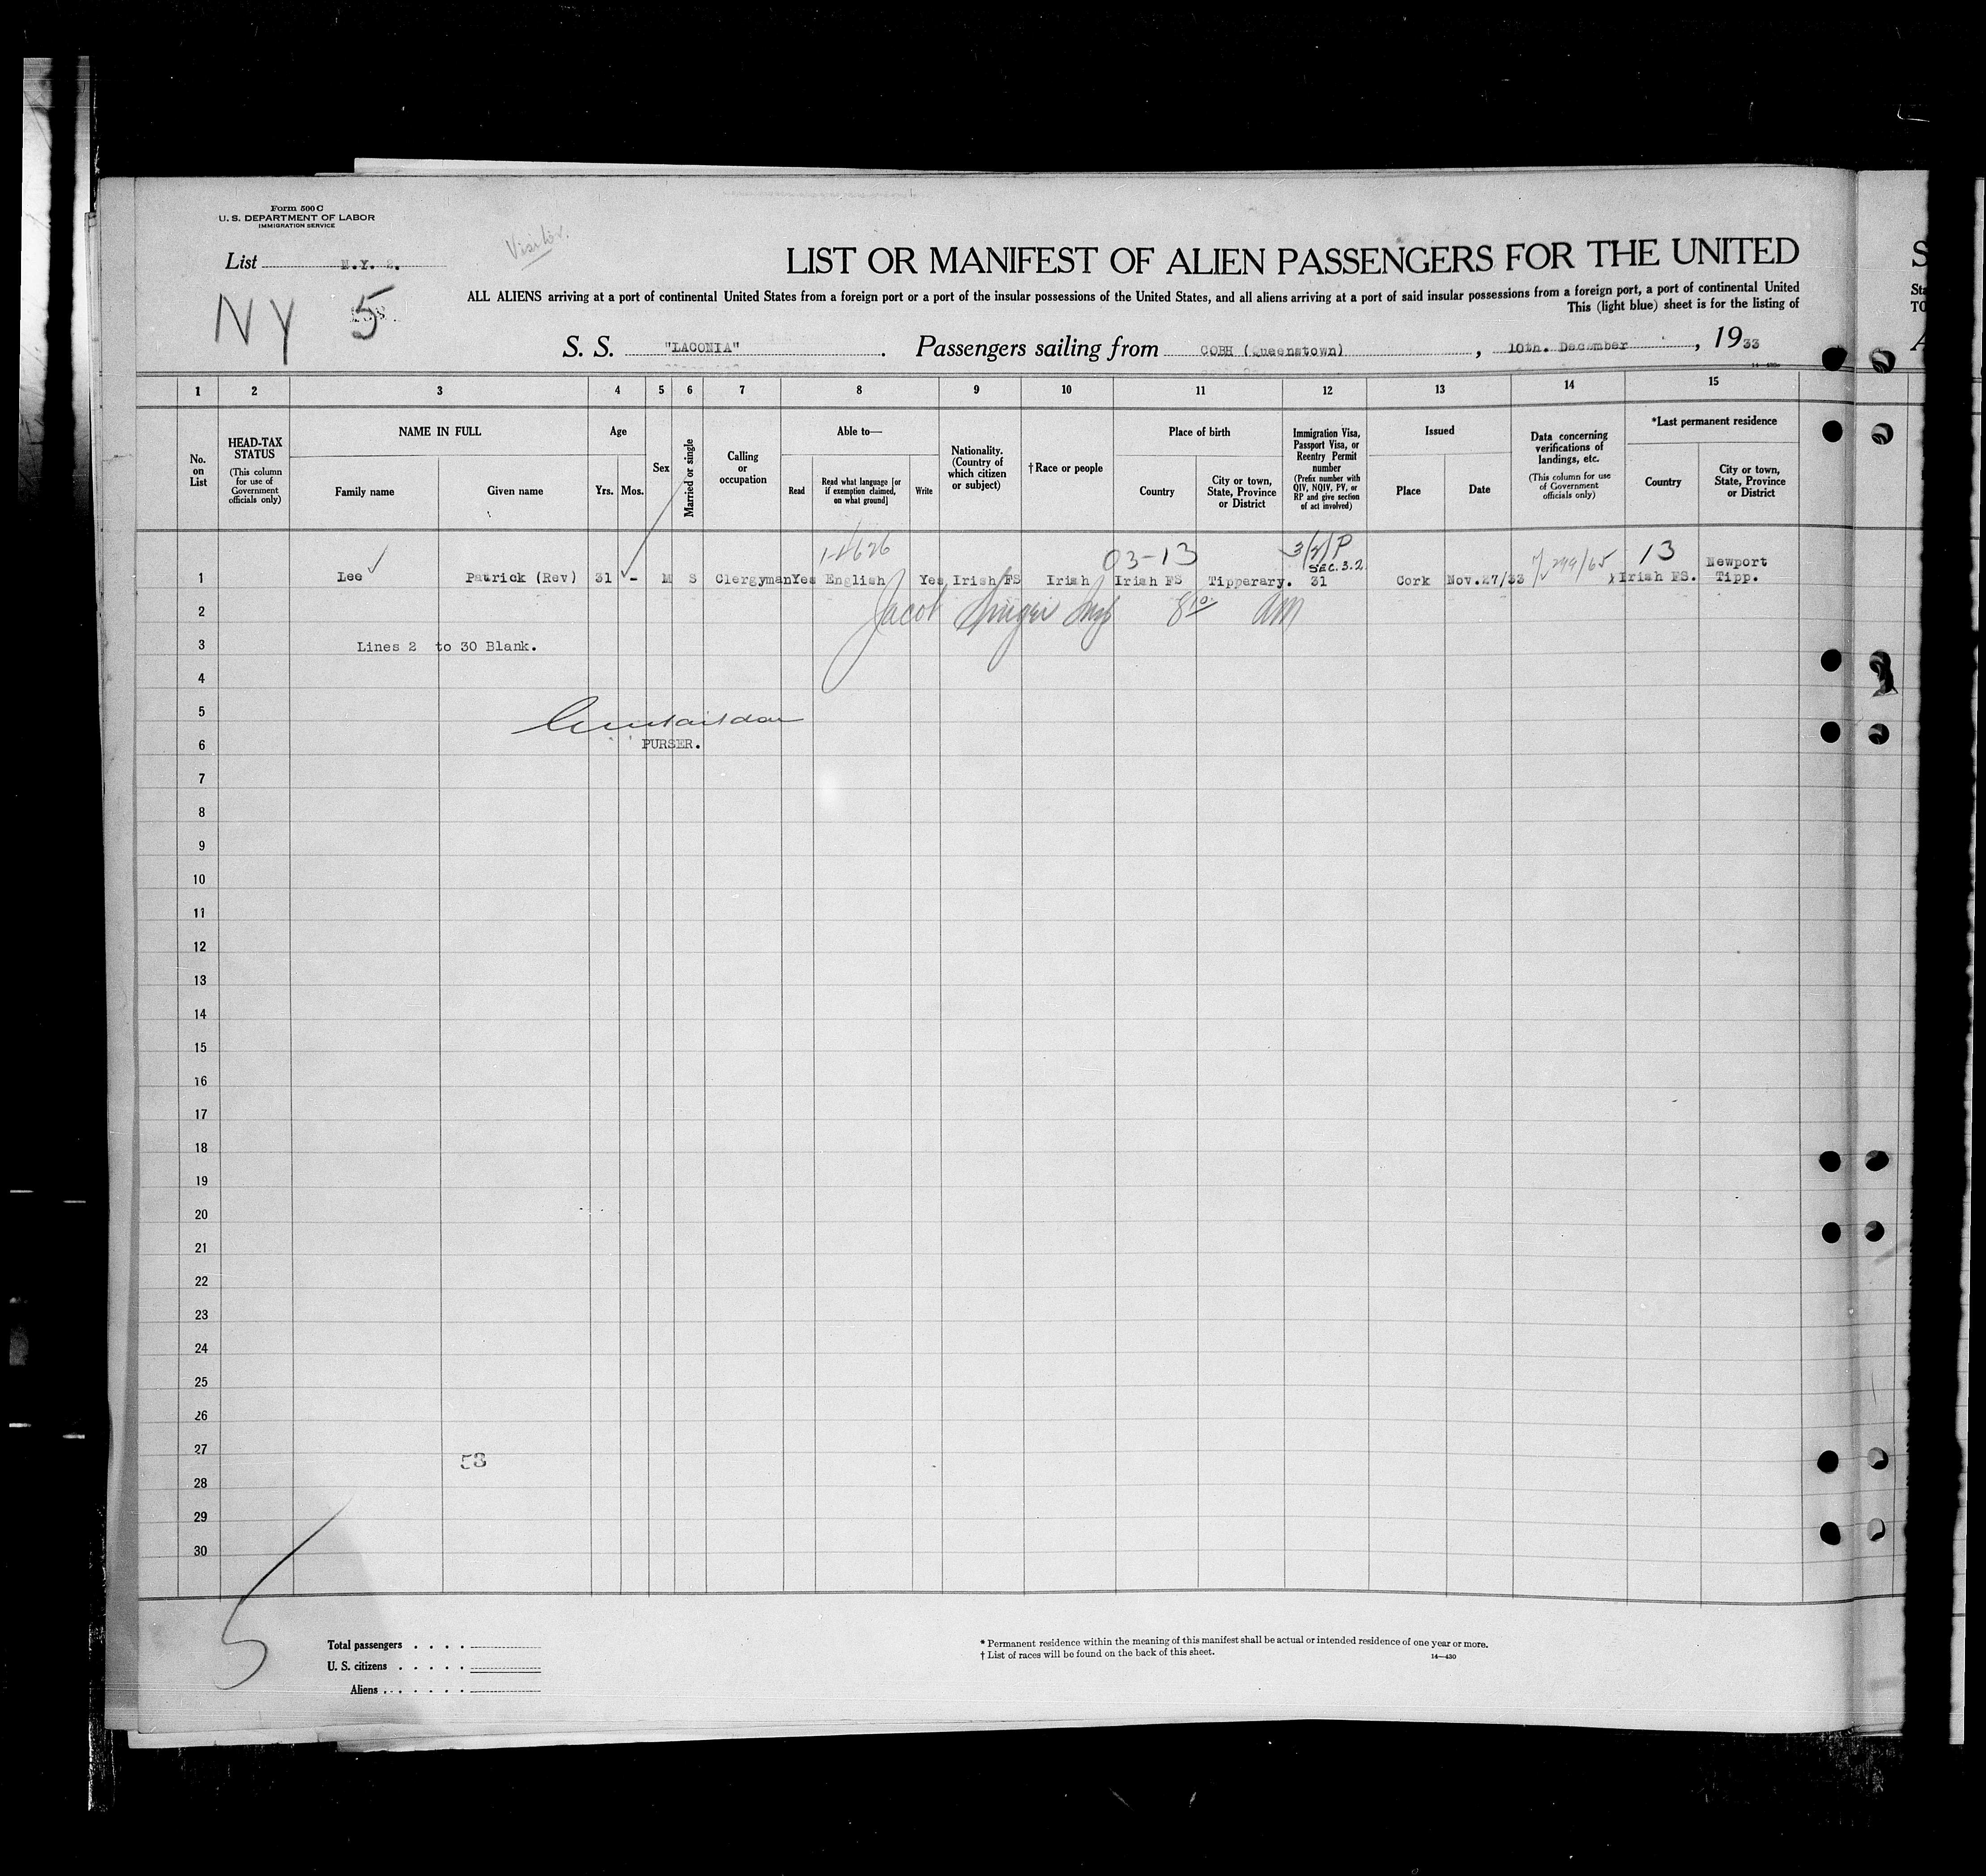 Form 500 C
U. S. DEPARTMENT OF LABOR
IMMIGRATION SERVICE
Visitor.
List
N.Y.
NY 5
LIST OR MANIFEST OF ALIEN PASSENGERS FOR THE UNITED
ALL ALIENS arriving at a port of continental United States from a foreign port or a port of the insular possessions of the United States, and all aliens arriving at a port of said insular possessions from a foreign port, a port of continental United
This (light blue) sheet is for the listing of
S. S. "LACONIA". Passengers sailing from COBH (Queenstown), 10th. December, 1933
14—430
1 2 3 4 5 6 7 8 9 10 11 12 13 14 15
No. on List
HEAD-TAX STATUS
(This column for use of Government officials only)
NAME IN FULL
Family name
Given name
Age
Yrs.
Mos.
Sex
Married or single
Calling or occupation
Able to—
Read
Read what language [or if exemption claimed, on what ground]
Write
Nationality. (Country of which citizen or subject)
†Race or people
Place of birth
Country
City or town, State, Province or District
Immigration Visa, Passport Visa, or Reentry Permit number
(Prefix number with QIV, NQIV, PV, or RP and give section of act involved)
Issued
Place
Date
Data concerning verifications of landings, etc.
(This column for use of Government officials only)
*Last permanent residence
Country
City or town, State, Province or District
03-13
3/2/P
SEC. 3.2.
13
Newport
1 Lee Patrick (Rev) 31 - M S Clergyman Yes English Yes Irish FS Irish Irish FS Tipperary. 31 Cork Nov.27/33 Irish FS. Tipp.
2
Jacob 8 10 AM
3 Lines 2 to 30 Blank.
4
5
6 PURSER.
7
8
9
10
11
12
13
14
15
16
17
18
19
20
21
22
23
24
25
26
27
53
28
29
30
5
Total passengers . . . .
U. S. citizens . . . . .
Aliens . . . . . .
* Permanent residence within the meaning of this manifest shall be actual or intended residence of one year or more.
† List of races will be found on the back of this sheet.
14—430